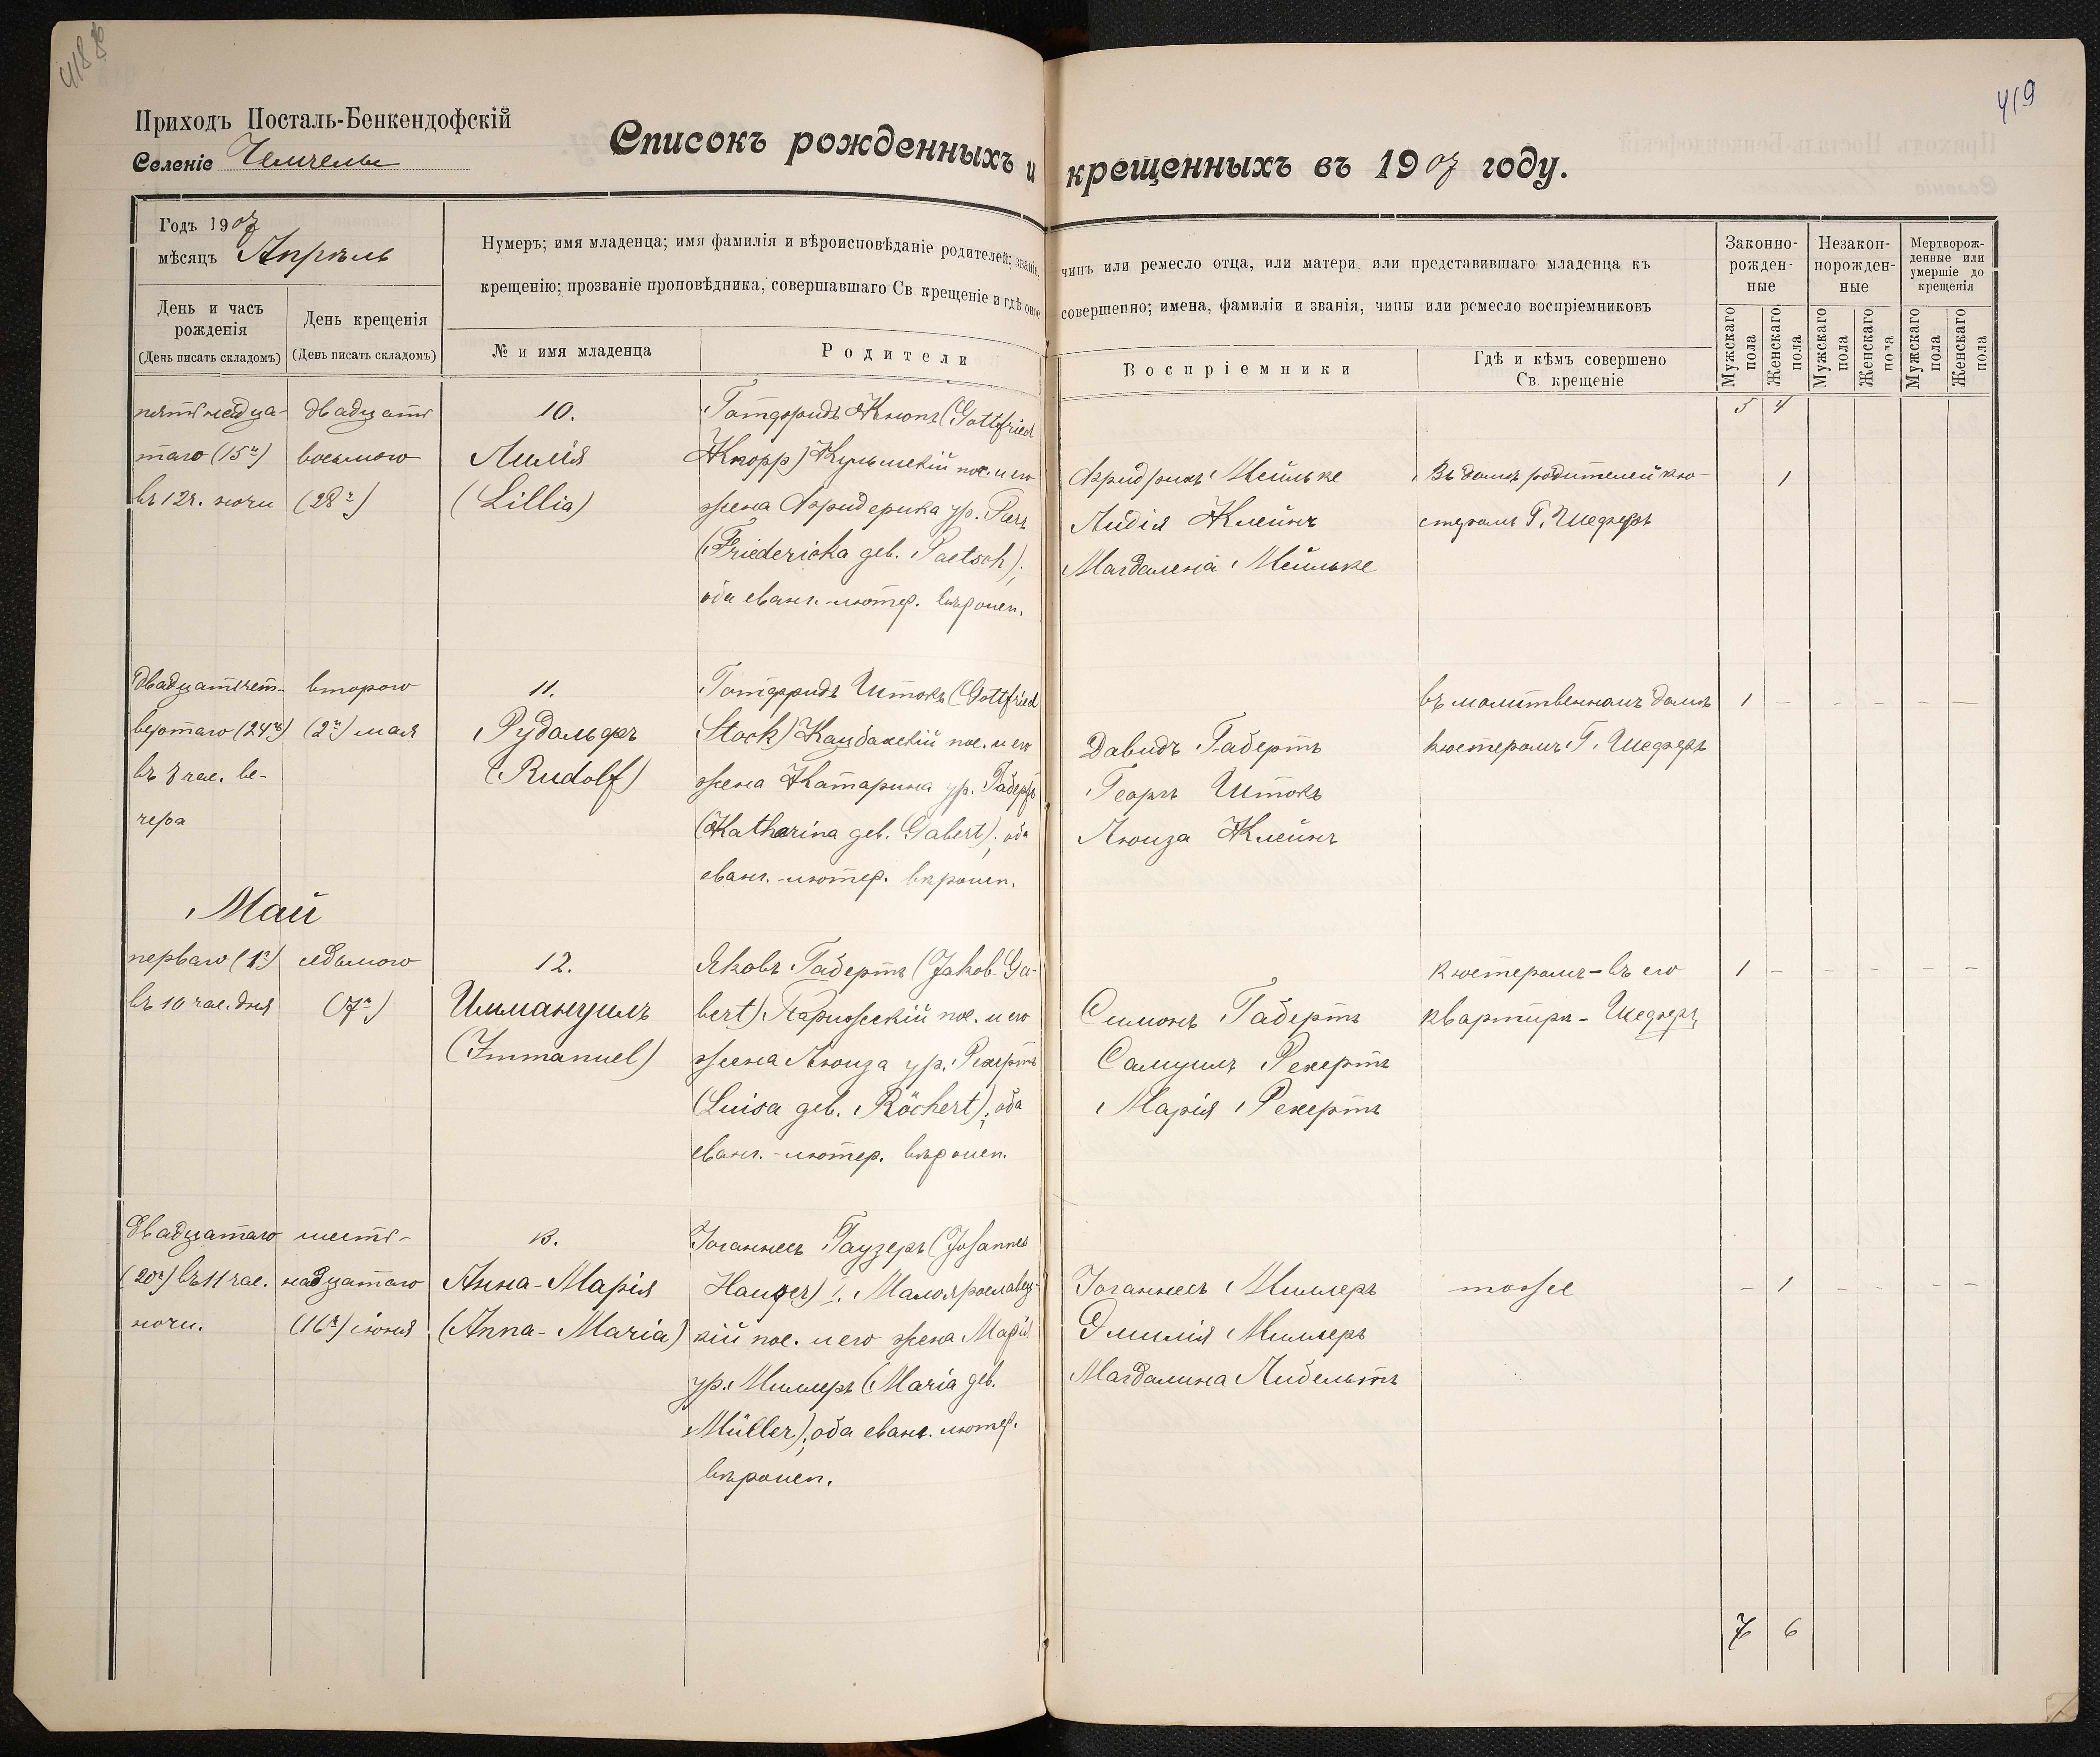 418 об
419
Приходъ Посталь-Бенкендофскій
Селеніе Чемчелы
Списокъ рожденныхъ и крещенныхъ въ 1907 году.
Годъ 1907
мѣсяцъ Апрѣль
Нумеръ; имя младенца; имя фамилія и вѣроисповѣданіе родителей; званіе, чинъ или ремесло отца, или матери или представившаго младенца къ
крещенію; прозваніе проповѣдника, совершавшаго Св крещеніе и гдѣ оное совершенно; имена, фамиліи и званія, чины или ремесло воспріемниковъ
День и часъ
рожденія
(День писать складомъ)
День крещенія
(День писать складомъ)
№ и имя младенца
Родители
Воспріемники
Гдѣ и кѣмъ совершено
Св. крещеніе
Законно-
рожден-
ные
Незакон-
норожден-
ные
Мертворож-
денные или
умершіе до
крещенія
Мужскаго пола
Женскаго пола
Мужскаго пола
Женскаго пола
Мужскаго пола
Женскаго пола
5 4
пятнадца-
таго (15го)
въ 12ч. ночи
двадцать
восьмого
(28г)
10.
Лилія
(Lillia)
Готфридъ Кнопъ (Gottfried
Knopp) Кульмскій пос. и его
жена Фридерика ур.
(Friedericka geb. Paetsch);
оба еванг.-лютер. вѣроисп.
Фридрихъ Мейльке
Лидія Клейнъ
Магдалена Мейльке
Въ домѣ родителей кю-
стеромъ Г. Шефферъ
1
двадцатьчет-
вертаго (24го)
въ 8 час. ве-
чера
второго
(2го) мая
11.
Рудольфъ
(Rudolf)
Готфридъ Штокъ (Gottfried
Stock) Кацбахскій пос. и его
жена Катарина ур. Габертъ
(Katharina geb. Gabert); оба
еванг.-лютер. вѣроисп.
Давидъ Габертъ
Георгъ Штокъ
Люиза Клейнъ
въ молитвенномъ домѣ
кюстеромъ Г. Шефферъ
1 - - - - -
Май
перваго (1г)
въ 10 час. дня
седьмого
(7г)
12.
Иммануилъ
(Immanuel)
Яковъ Габертъ (Jakob Ga-
bert) Парижскій пос. и его
жена Люиза ур. Рехертъ
(Luisa geb. Röchert); оба
еванг.-лютер. вѣроисп.
Симонъ Габертъ
Самуилъ Рехертъ
Марія Рехертъ
кюстеромъ - въ его
квартирѣ - Шефферъ
1 - - - - -
двадцатаго
(20г) въ 11 час.
ночи.
шест-
надцатаго
(16г) іюня
13.
Анна-Марія
(Anna-Maria)
Іоганнесъ Гаузеръ (Johannes
Hauser) I. Малоярославец-
кій пос. и его жена Марія
ур. Миллеръ (Maria geb.
Müller); оба еванг. лютер.
вѣроисп.
Іоганнесъ Миллеръ
Эмилія Миллеръ
Магдалина Либельтъ
тоже
- 1 - - - -
7 6